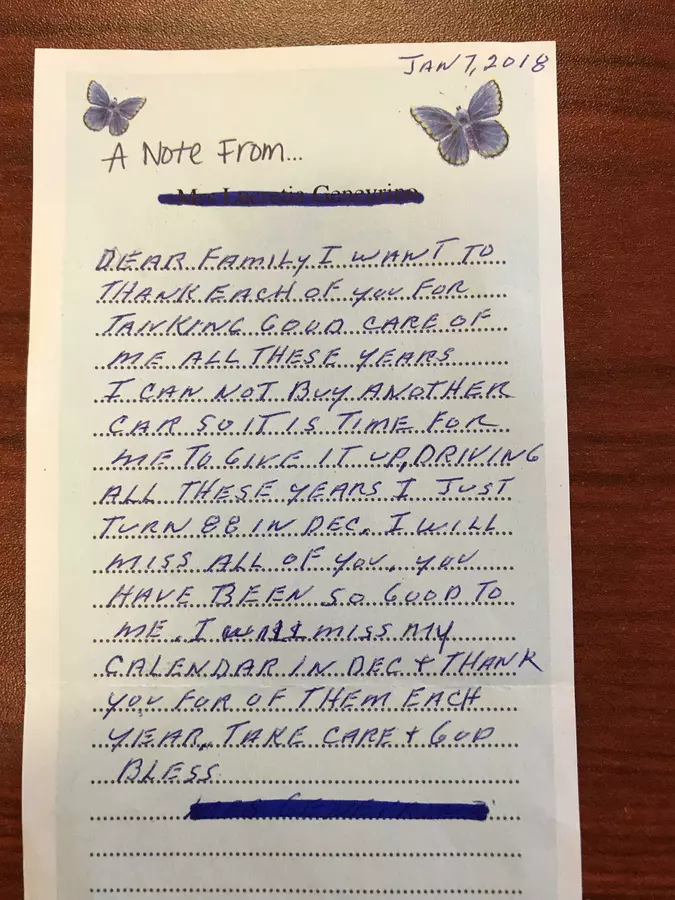 JAN 7, 2018
A Note From...
DEAR FAMILY I WANT TO
THANK EACH OF YOU FOR
TAINKING GOOD CARE OF
ME ALL THESE YEARS
I CAN NOT BUY ANOTHER
CAR SO IT IS TIME FOR
ME TO GIVE IT UP, DRIVING
ALL THESE YEARS I JUST
TURN 88 IN DEC. I WILL
MISS ALL OF YOU. YOU
HAVE BEEN SO GOOD TO
ME. I WILL MISS MY
CALENDAR IN DEC + THANK
YOU FOR OF THEM EACH
YEAR. TAKE CARE + GOD
BLESS